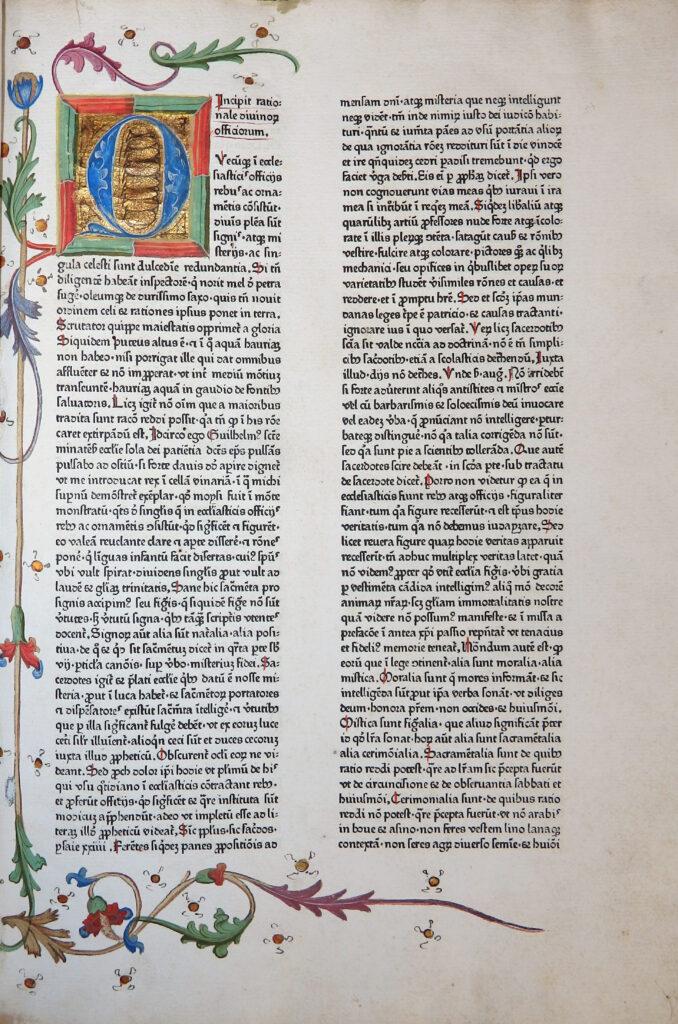 Incipit ratio-
nale diuinoꝝ
officiorum.
Vecūqꝫ ī eccle-
siasticis officijs
rebus ac orna-
mētis cōsistūt·
diuīs plēa sūt
signis· atqꝫ mi
sterijs· ac sin-
gula celesti sunt dulcedīe redundantia. Si tn̄
diligentē habeāt inspectorē· q̇ norit mel ō petra
sugē· oleumqꝫ de durissimo saxo. quis tn̄ nouit
ordinem celi ⁊ rationes ipsius ponet in terra.
Scrutator quippe maiestatis opprimet̄ a gloria
Siquidem puteus altus ē· ⁊ ī q̇ aquā hauriaꝫ
non habeo· nisi porrigat ille qui dat omnibus
affluēter ⁊ nō imꝓperat· vt int̄ mediū mōtiuꝫ
transeuntē· hauriaꝫ aquā in gaudio de fontibꝫ
saluatoris. Licꝫ igit̄ nō oīm que a maioribus
tradita sunt racō reddi possit· qꝛ tn̄ qꝫ ī his rōe
caret extirpādū est. Idcirco ego Guilhelmꝰ scē
minatēß ecclīe sola dei patiētia dcūs ep̄s pulsās
pulsabo ad ostiū· si forte dauis dō apire dignet̄
vt me introducat rex ī cellā vinariā· ī q̇ michi
supnū demōstret̄ exēplar· qḋ moysi fuit ī mōte
monstratū· qtꝰ ō singlis q̇ in ecclāsticis officijs
rebꝫ ac ornamētis ꝯsistūt· qḋ sigficēt ⁊ figurēt·
eo valeā reuelante clare ⁊ apte disserē· ⁊ rōnes
ponē· q̇ liguas infantū facit disertas· cuiꝰ sp̄us
vbi vult spirat· diuidens singlis ꝓut vult ad
laudē ⁊ gliaꝫ trinitatis. Sane hic sacm̄ēta pro
signis accipimꝰ seu figis· q̇ siquidē figē nō sūt
vtutes· hꝫ vtutū signa· qbꝫ tāqꝫ scriptis vtentes
docent̄. Signoꝝ aūt alia sūt natalia· alia posi-
tiua· de qꝰ ⁊ qḋ sit sacm̄ētuꝫ dicet̄ in q̄rta pte sƀ
vij· pticla canōis· sup vbo· misteriuꝫ fidei. Sa-
cerdotes igit̄ ⁊ p̄lati ecclīe qbꝫ datū ē nosse mi-
steria· ꝓut ī luca habet̄· ⁊ sacm̄ētoꝝ portatores
⁊ dispēsatores existūt sacm̄ta ītelligē· ⁊ vtutibꝫ
que p illa sigficant̄ fulgē debēt· vt ex eoruꝫ luce
cet̄i sils illuīent̄· alioqn ceci sūt et duces cecoruꝫ
iuxta illud ꝓpheticū. Obscurent̄ ocli eoꝝ ne vi-
deant. Sed ꝓch dolor ip̄i hodie vt plimū de his
qui vsu qtidiano ī ecclīasticis ꝯtractant rebꝫ·
et ꝓferūt officijs· qḋ sigficēt ⁊ qre instituta sūt
modicuꝫ app̄hendūt· adeo vt impletū esse ad li-
terāꝫ illḋ ꝓpheticū videat̄. Sic ppl̄us· sic sacdos·
ysaie xxiiii. Ferētes siqdeꝫ panes ꝓpōsitiōis ad
mensam dn̄i· atqꝫ misteria que neqꝫ intelligunt
neqꝫ vidēt· tn̄ inde nimiꝝ iusto dei iudicō habi-
turi· qntū ⁊ iumta pāes ad vsū portātia alioꝝ
de qua ignorātia rōeꝫ reddituri sūt ī die vindcē
et ire qnquidez cedri padisi tremebunt· qḋ ergo
faciet vga debti. Eis eī p ꝓphaꝫ dicet̄. Ipsi vero
non cognouerunt vias meas qbꝫ iuraui ī ira
mea si intrbūt ī reqeꝫ meā. Siqdeꝫ libaliū atqꝫ
quarūlibꝫ artiū ꝓfessores nude forte atqꝫ ī colo-
rate ī illis plerqꝫ ōtēta· satagūt causis ⁊ rōnibꝫ
vestire· fulcire atqꝫ colorare· pictores qꝫ ac qlibꝫ
mechanici· seu opifices in qbuslibet opeꝝ suoꝝ
varietatibꝫ studēt vſimiles rōnes et causas· et
reddere· et ī promptu hr̄e. Sed et scōꝫ ip̄as mun-
danas leges tꝑe ē patricio· ⁊ causas tractanti·
ignorare ius ī quo versat̄. Veꝝ licꝫ sacerdotibꝫ
scīa sit valde ncc̄ia ad doctrinā· nō ē tn̄ simpli-
cibꝫ sacdotibꝫ· etiā a scolasticis detꝰhendū. Iuxta
illud· dijs nō detrhes. Vnde b. aug. Nō arridebē
si forte aduterint aliqs antistites ⁊ mistros ecclīe
vel cū barbarismis ⁊ soloecismis deū inuocare
vel eadeꝫ vba· q̇ ꝓnūciant nō intelligere· ptur-
bateqꝫ distinguē· nō qꝛ talia corrigēda nō sūt·
sed qꝛ sunt pie a scientibꝫ tollerāda. Que autē
sacerdotes scire debeāt· in scōa pte· sub tractatu
de sacerdote dicet̄. Porro non videtur qꝫ ea q̇ in
ecclesiasticis fiunt rebꝫ atqꝫ officijs· figuraliter
fiant· tum qꝛ figure recesserūt· ⁊ est tp̄us hodie
veritatis· tum qꝛ nō debemus iudayzare. Sed
licet reuera figure quaꝝ hodie veritas apparuit
recesserūt· tn̄ adhuc multiplex veritas latet· quā
nō videmꝰ ꝓpter qḋ vtit̄ ecclīa figis· vbi gratia
p vestimēta cādida intelligimꝰ aliqꝫ mō decorē
animaꝝ nraꝝ· scꝫ gliam immortalitatis nostre
quā videre nō possumꝰ manifeste· ⁊ ī missa a
prefacōe ī antea xp̄i passio rep̄ntat̄ vt tenacius
et fideliꝰ memorie teneat̄. Nondum autē est· qꝫ
eorū que ī lege ōtinent̄· alia sunt moralia· alia
mistica. Moralia sunt q̇ mores informāt· ⁊ sic
intelligēda sūt ꝓut ip̄a verba sonāt· vt diliges
deum· honora prēm· non occides· ⁊ huiusmōi.
Mistica sunt figālia· que aliud significant p̄ter
iḋ qḋ lr̄a sonat· hoꝝ aūt alia sunt sacramētalia
alia cerimōialia. Sacramētalia sunt de quibꝫ
ratio reddi potest· qre ad lr̄am sic p̄cepta fuerūt
vt de circuncisione ⁊ de obseruantia sabbati et
huiusmōi. Cerimonialia sunt· de quibus ratio
reddi nō potest· qre p̄cepta fuerūt· vt nō arabis
in boue ⁊ asino· non feres vestem lino lanaqꝫ
contextā· non seres agꝝ diuerso semīe· ⁊ huiōi